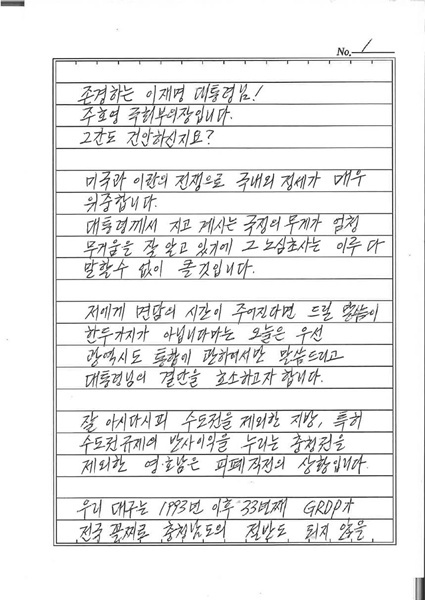 No. 1
존경하는 이재명 대통령님!
주호영 국회부의장입니다.
그간도 건안하신지요?
미국과 이란의 전쟁으로 국내외 정세가 매우
위중합니다.
대통령께서 지고 계시는 국정의 무게가 엄청
무거움을 잘 알고 있기에 그 노심초사는 이루 다
말할 수 없이 클 것입니다.
저에게 면담의 시간이 주어진다면 드릴 말씀이
한두가지가 아닙니다마는 오늘은 우선
광역시도 통합에 관하여서만 말씀드리고
대통령님의 결단을 호소하고자 합니다.
잘 아시다시피 수도권을 제외한 지방, 특히
수도권규제의 반사이익을 누리는 충청권을
제외한 영·호남은 피폐직전의 상황입니다.
우리 대구는 1993년 이후 33년째 GRDP가
전국 꼴찌로 충청남도의 절반도 되지 않을